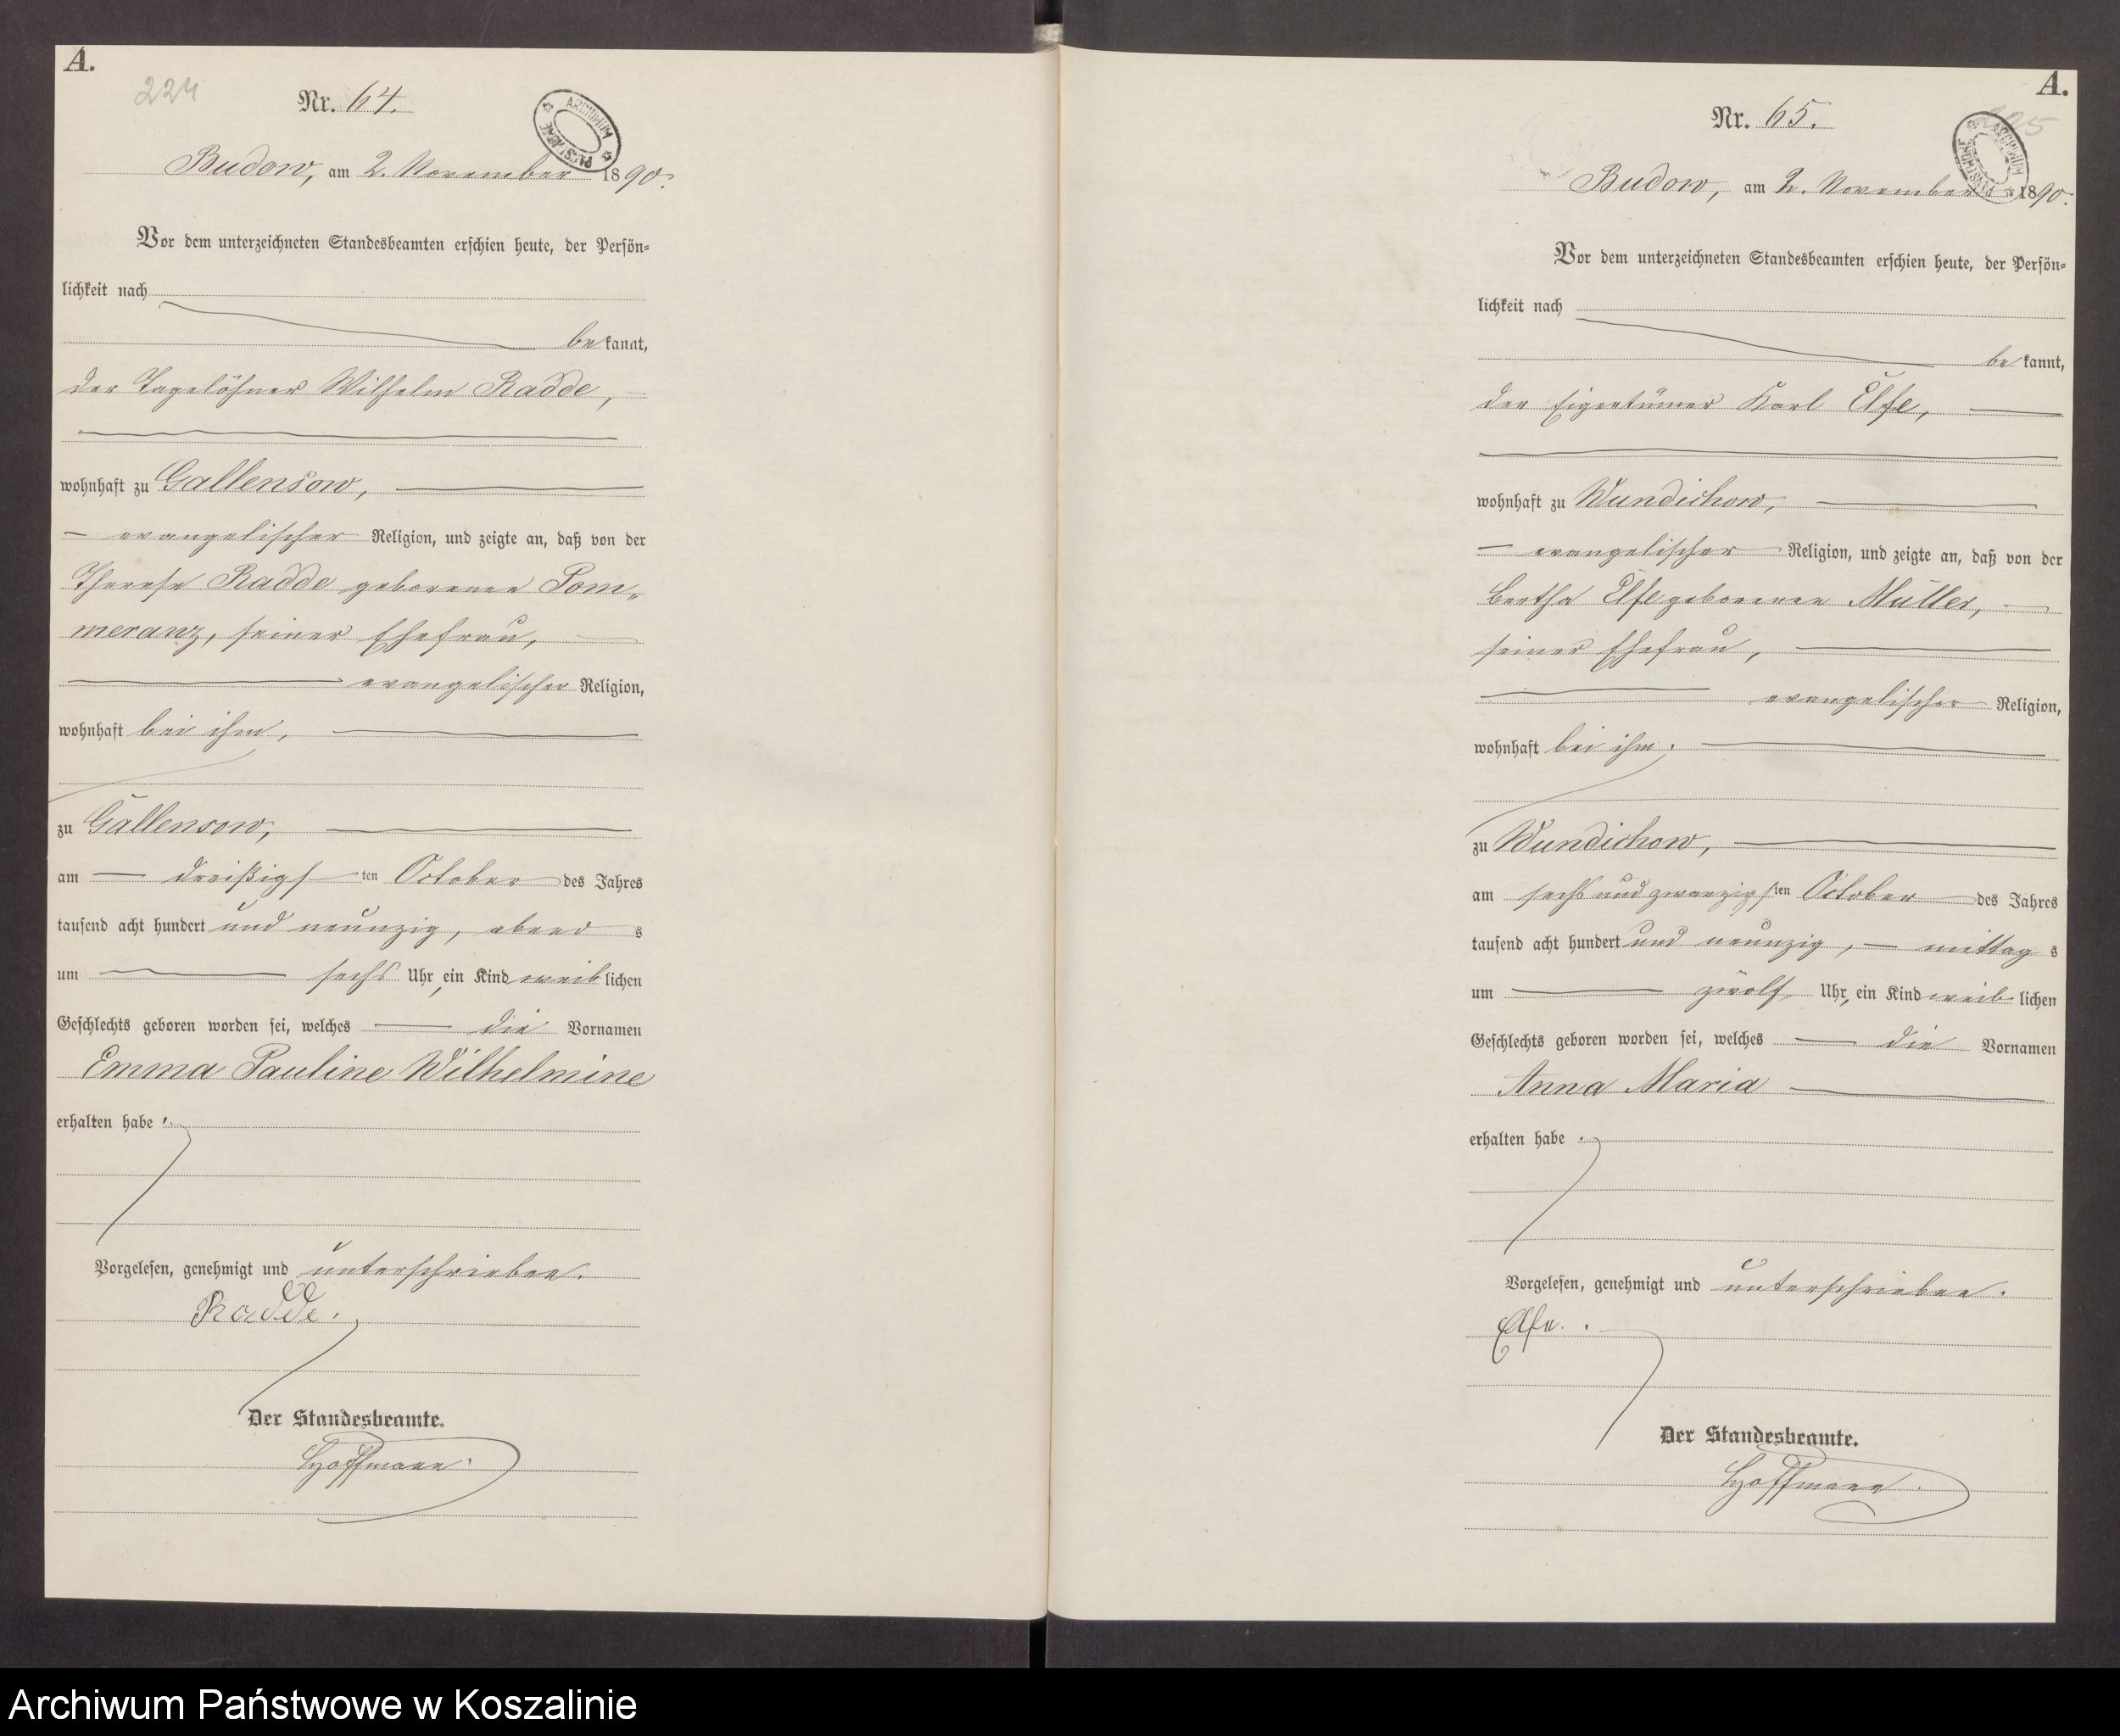 A.
224
Nr. 64.
ARCHIWUM PAŃSTWOWE
Budow, am 2. November 1890.
Vor dem unterzeichneten Standesbeamten erschien heute, der Persön=
lichkeit nach
bekannt,
der Tagelöhner Wilhelm Radde,
wohnhaft zu Gallensow,
evangelischer Religion, und zeigte an, daß von der
Therese Radde geborenen Pom=
meranz, seiner Ehefrau,
evangelischer Religion,
wohnhaft bei ihm,
zu Gallensow,
am dreißigsten October des Jahres
tausend acht hundert und neunzig, abends
um sechs Uhr, ein Kind weiblichen
Geschlechts geboren worden sei, welches die Vornamen
Emma Pauline Wilhelmine
erhalten habe.
Vorgelesen, genehmigt und unterschrieben.
Radde.
Der Standesbeamte.
Hoffmann.
A.
Nr. 65.
Budow, am 2. November 1890.
Vor dem unterzeichneten Standesbeamten erschien heute, der Persön=
lichkeit nach
bekannt,
der Eigentümer Karl Elfe,
wohnhaft zu Wundichow,
evangelischer Religion, und zeigte an, daß von der
Bertha Elfe geborenen Müller,
seiner Ehefrau,
evangelischer Religion,
wohnhaft bei ihm.
zu Wundichow,
am sechs und zwanzigsten October des Jahres
tausend acht hundert und neunzig, mittags
um zwölf Uhr, ein Kind weiblichen
Geschlechts geboren worden sei, welches die Vornamen
Anna Maria
erhalten habe.
Vorgelesen, genehmigt und unterschrieben.
Elfe.
Der Standesbeamte.
Hoffmann.
Archiwum Państwowe w Koszalinie